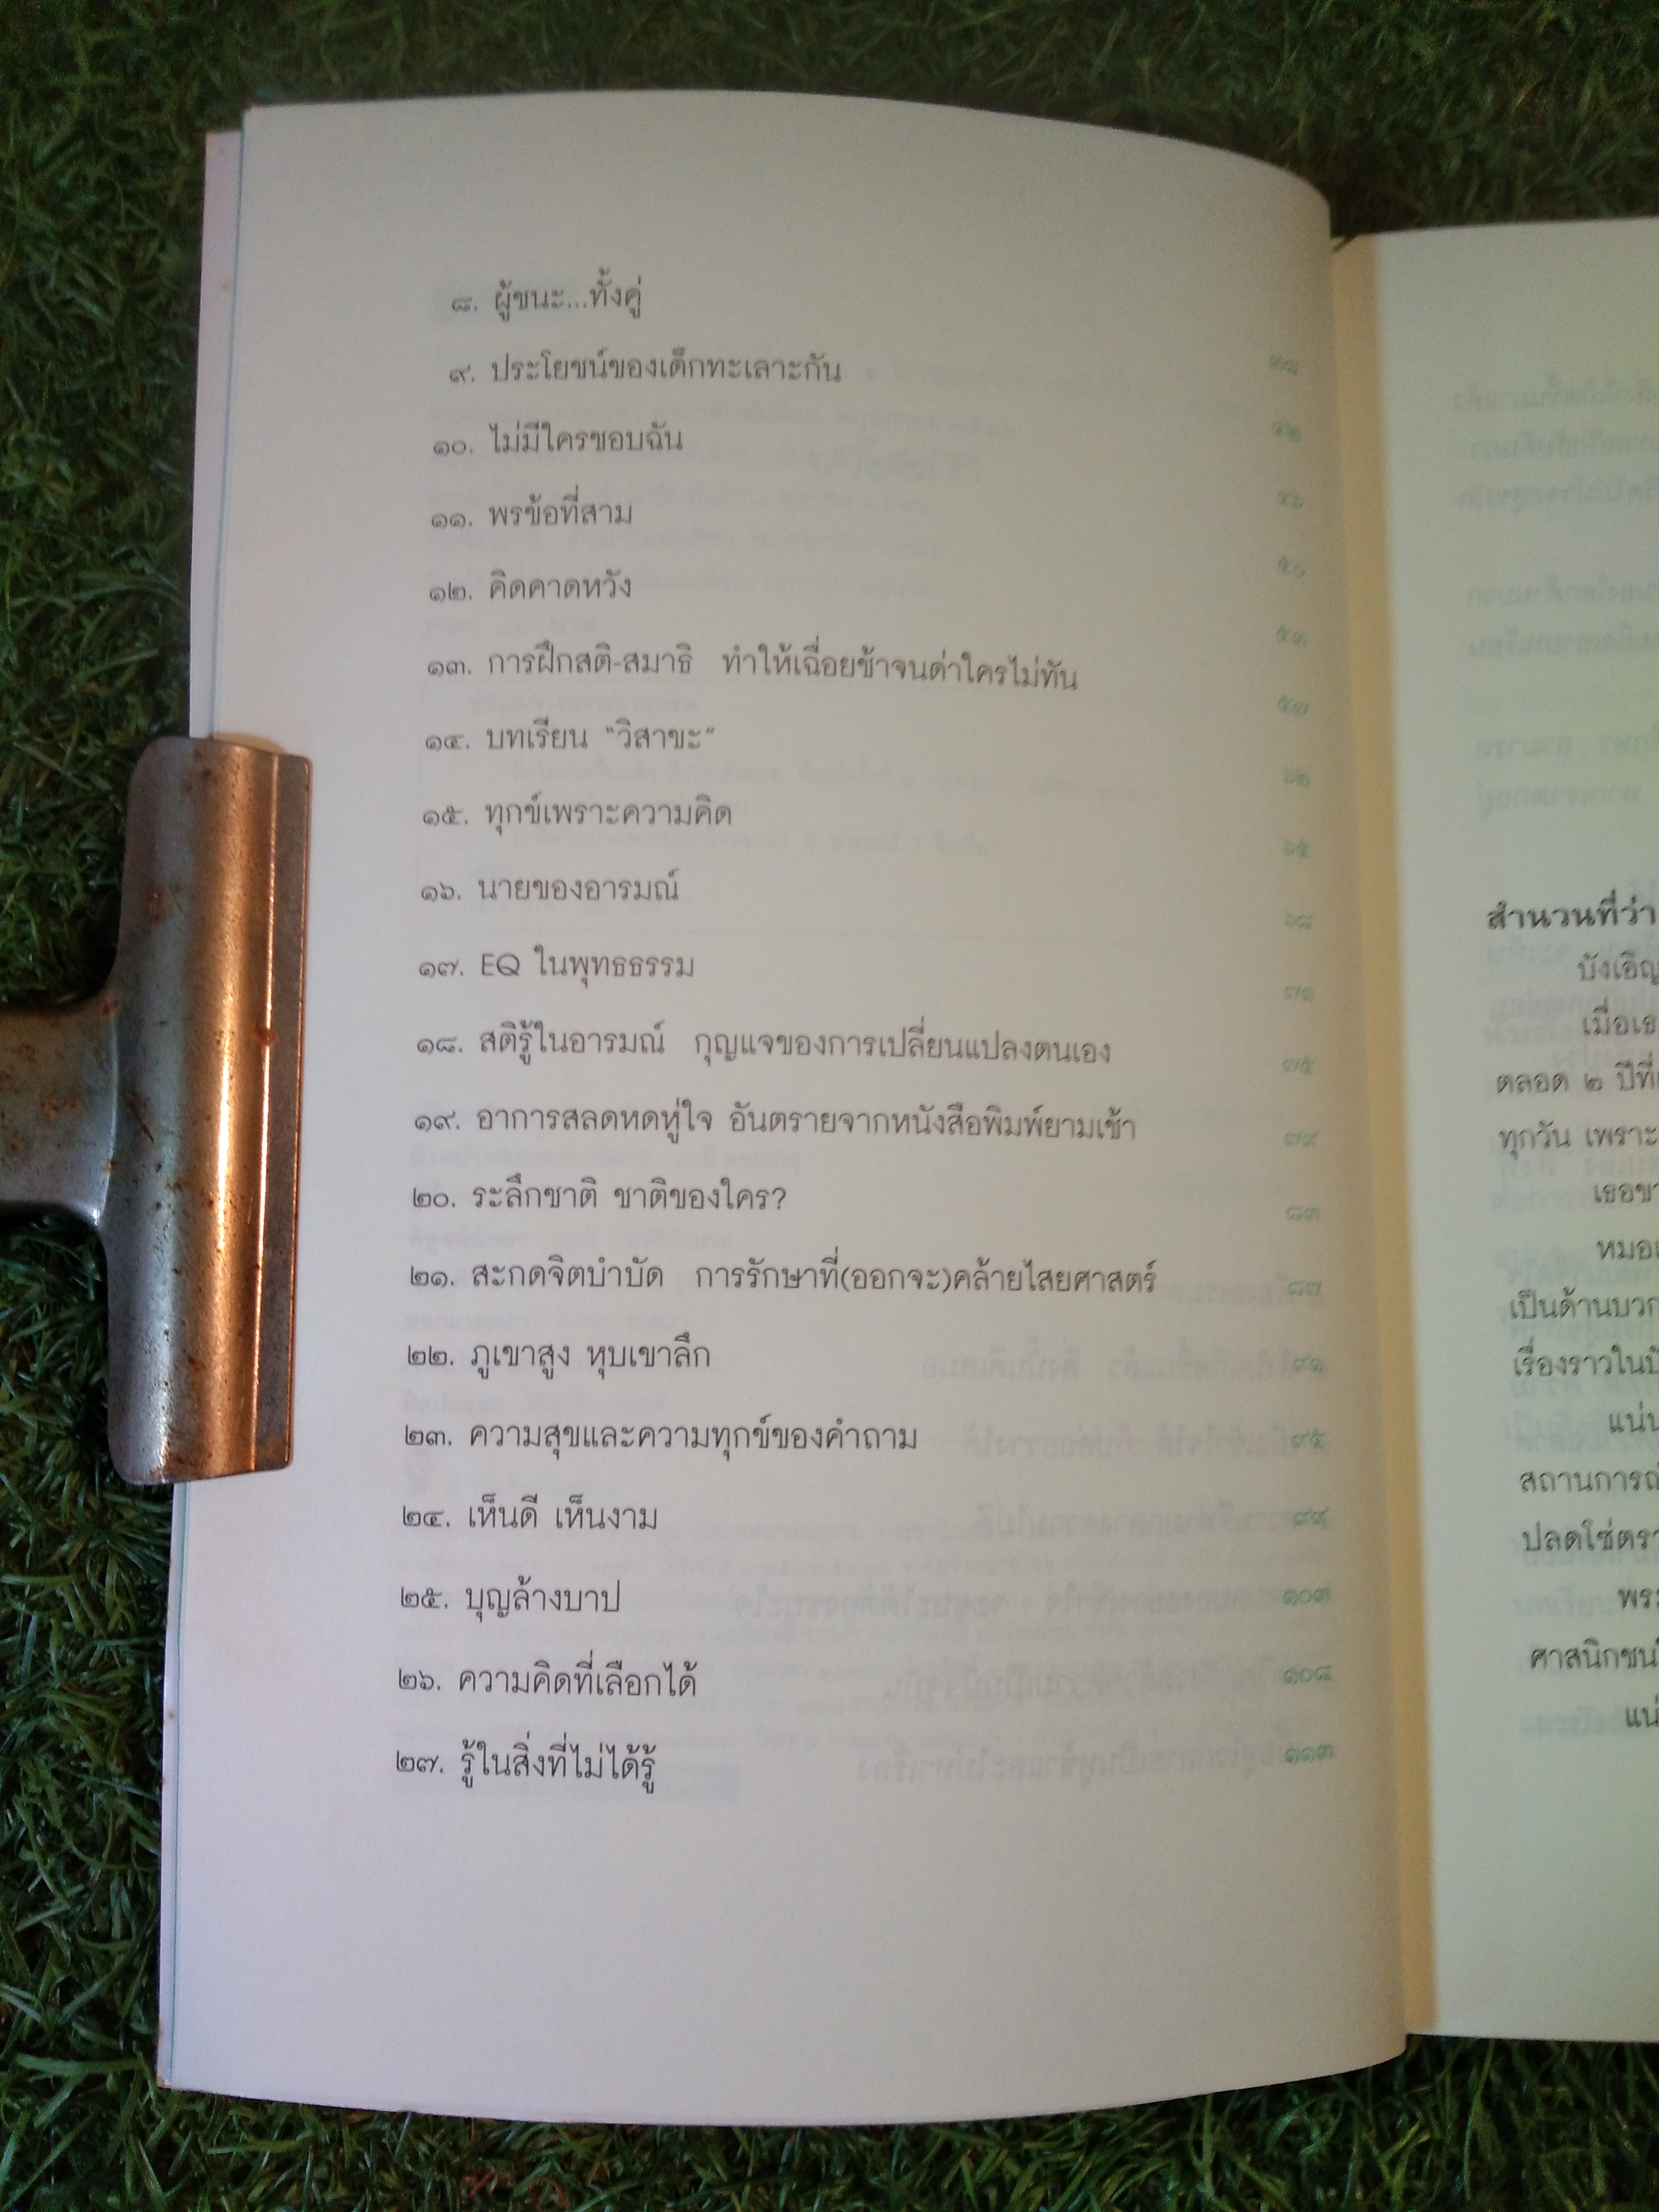 ๘. ผู้ชนะ...ทั้งคู่
๙. ประโยชน์ของเด็กทะเลาะกัน ๓๘
๑๐. ไม่มีใครชอบฉัน ๔๒
๑๑. พรข้อที่สาม ๔๖
๑๒. คิดคาดหวัง ๕๐
๑๓. การฝึกสติ-สมาธิ ทำให้เฉื่อยช้าจนด่าใครไม่ทัน ๕๓
๑๔. บทเรียน "วิสาขะ" ๕๗
๑๕. ทุกข์เพราะความคิด ๖๒
๑๖. นายของอารมณ์ ๖๕
๑๗. EQ ในพุทธธรรม ๖๘
๑๘. สติรู้ในอารมณ์ กุญแจของการเปลี่ยนแปลงตนเอง ๗๑
๑๙. อาการสลดหดหู่ใจ อันตรายจากหนังสือพิมพ์ยามเช้า ๗๕
๒๐. ระลึกชาติ ชาติของใคร? ๗๙
๒๑. สะกดจิตบำบัด การรักษาที่(ออกจะ)คล้ายไสยศาสตร์ ๘๓
๒๒. ภูเขาสูง หุบเขาลึก ๘๗
๒๓. ความสุขและความทุกข์ของคำถาม ๙๑
๒๔. เห็นดี เห็นงาม ๙๕
๒๕. บุญล้างบาป ๙๙
๒๖. ความคิดที่เลือกได้ ๑๐๓
๒๗. รู้ในสิ่งที่ไม่ได้รู้ ๑๐๘
๑๑๓
สำนวนที่ว่า
บังเอิญ
ตลอด ๒ ปีที่
ทุกวัน เพราะ
เป็นด้านบวก
ศาสนิกชน